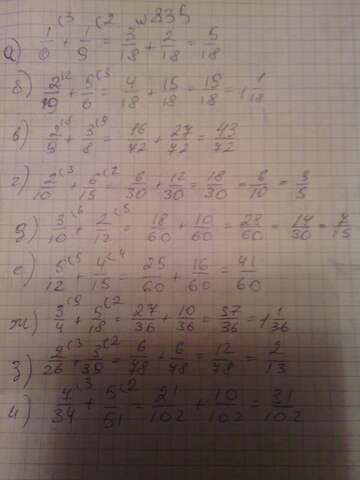 № 835
а) 1/6 (3 + 1/9 (2 = 3/18 + 2/18 = 5/18
б) 2/9 (2 + 5/6 (3 = 4/18 + 15/18 = 19/18 = 1 1/18
в) 2/9 (8 + 3/8 (9 = 16/72 + 27/72 = 43/72
г) 2/10 (3 + 6/15 (2 = 6/30 + 12/30 = 18/30 = 6/10 = 3/5
д) 3/10 (6 + 2/12 (5 = 18/60 + 10/60 = 28/60 = 14/30 = 7/15
е) 5/12 (5 + 4/15 (4 = 25/60 + 16/60 = 41/60
ж) 3/4 (9 + 5/18 (2 = 27/36 + 10/36 = 37/36 = 1 1/36
з) 2/26 (3 + 3/39 (2 = 6/78 + 6/78 = 12/78 = 2/13
и) 7/34 (3 + 5/51 (2 = 21/102 + 10/102 = 31/102